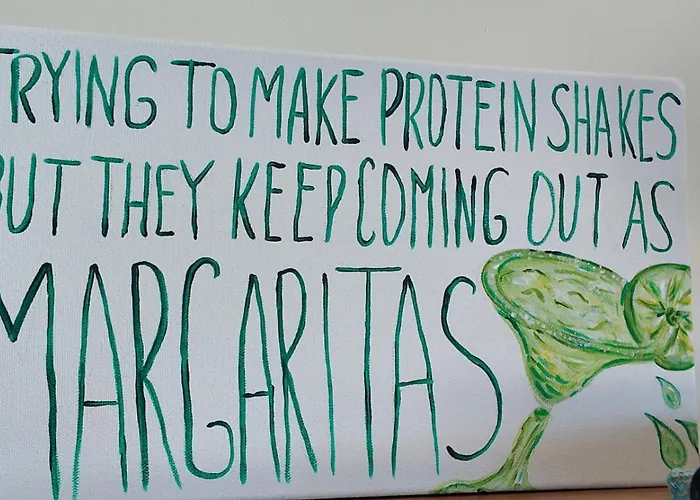 TRYING TO MAKE PROTEIN SHAKES
BUT THEY KEEP COMING OUT AS
MARGARITAS